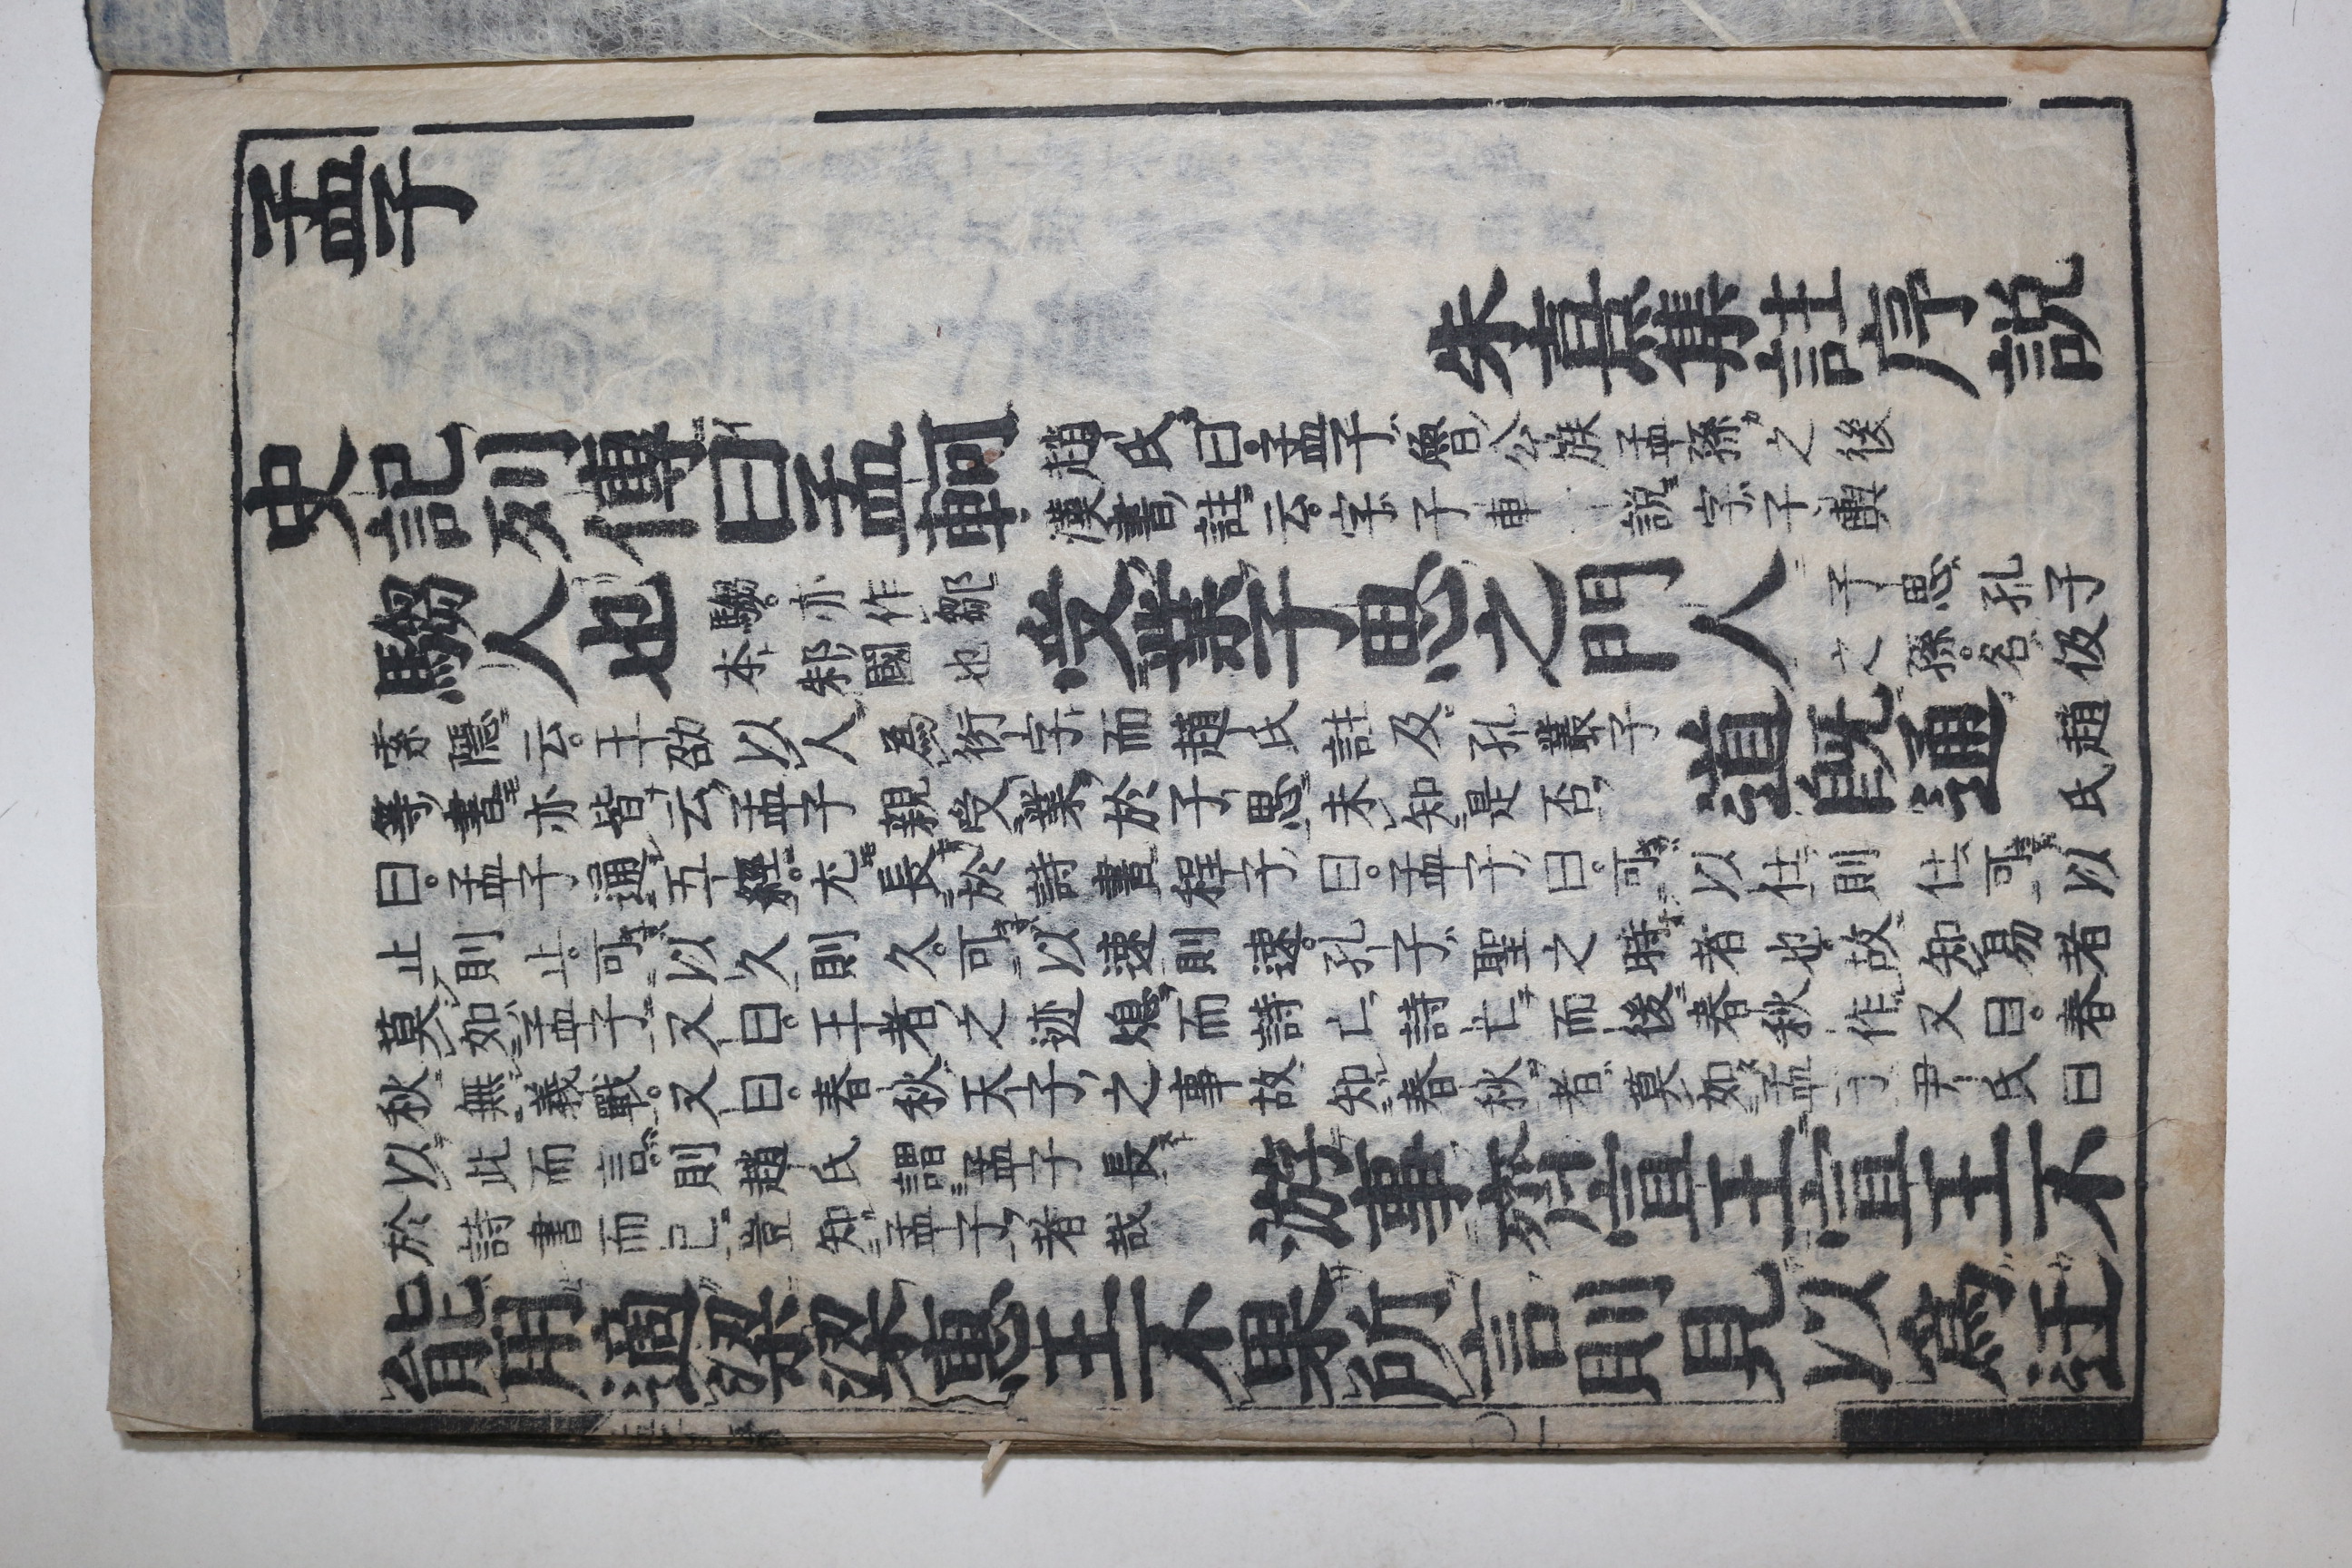 孟子
朱熹集註序說
史記列傳曰孟軻
趙氏曰孟子魯公族孟孫之後
漢書註云字子車一說字子輿
騶人也
騶亦作鄒
本邾國也
受業子思之門人
子思孔子
之孫名伋
索隱云王劭以人爲衍字而趙氏註及孔叢子
等書亦皆云孟子親受業於子思未知是否
道旣通
趙
氏
曰孟子通五經尤長於詩書程子曰孟子曰可以仕則仕可以
止則止可以久則久可以速則速孔子聖之時者也故知易者
莫如孟子又曰王者之迹熄而詩亡詩亡而後春秋作又曰春
秋無義戰又曰春秋天子之事故知春秋者莫如孟子尹氏曰
以此而言則趙氏謂孟子長
於詩書而已豈知孟子者哉
游事齊宣王宣王不
能用適梁梁惠王不果所言則見以爲迂